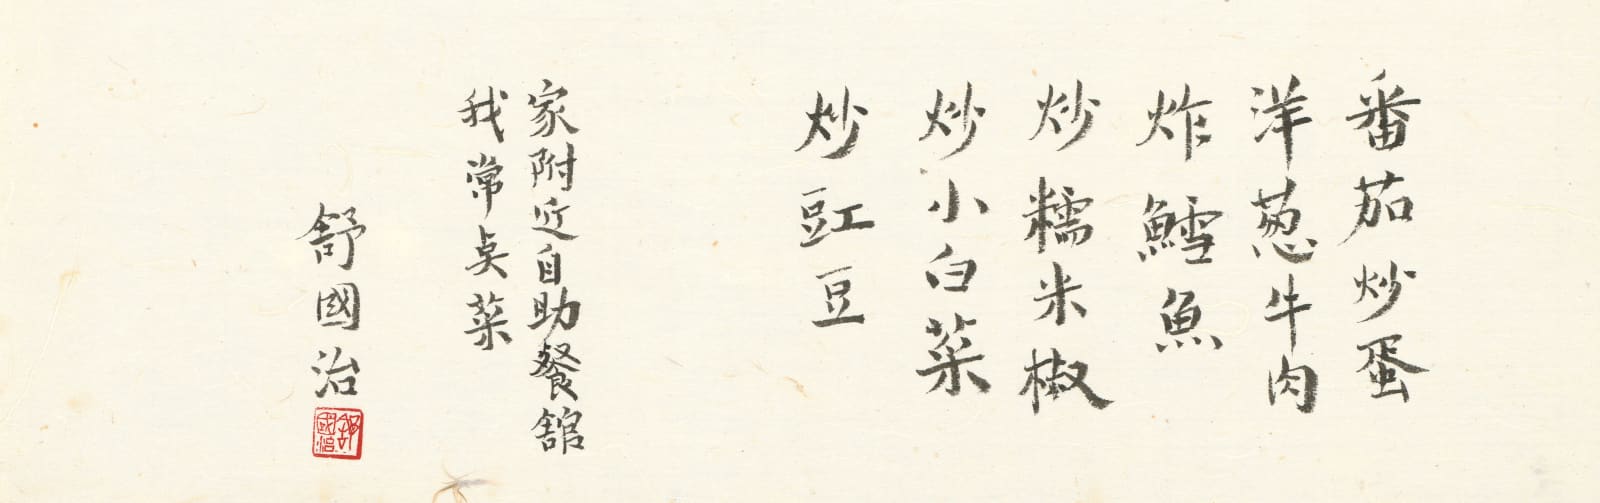 番茄炒蛋
洋葱牛肉
炸鱈魚
炒糯米椒
炒小白菜
炒豇豆
家附近自助餐舘
我常奌菜
舒國治
舒國治